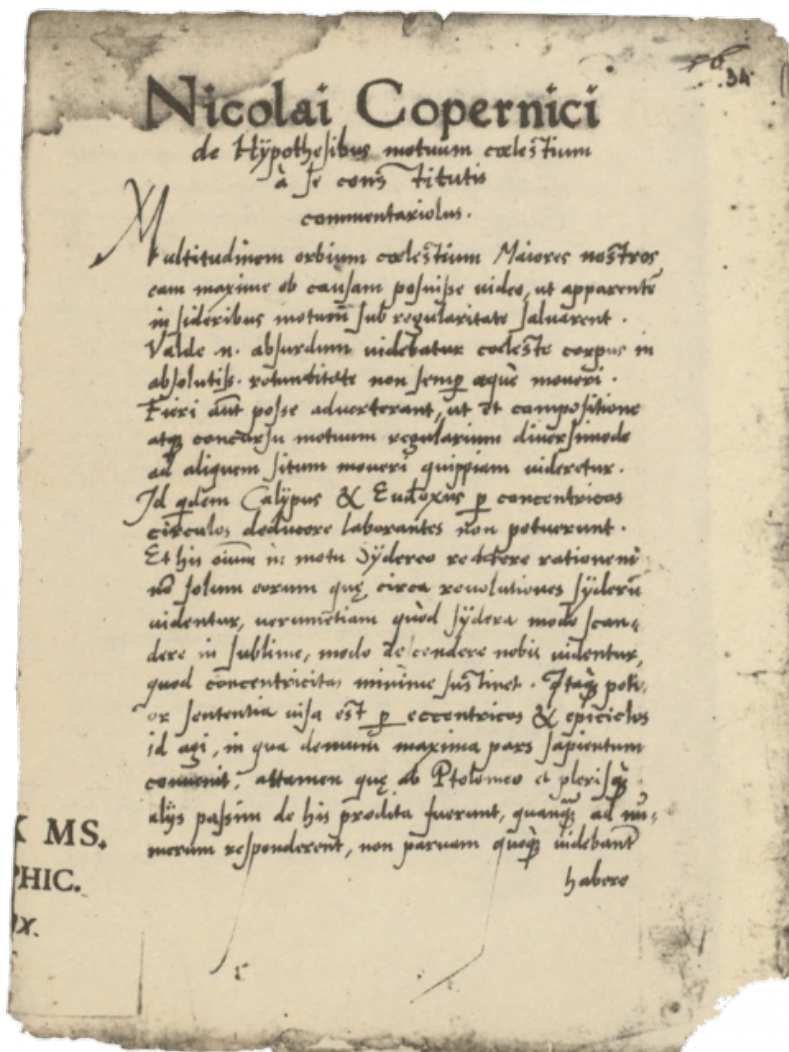 34
Nicolai Copernici
de Hÿpothesibus motuum cœlestium
à se constitutis
commentariolus.
Multitudinem orbium cœlestium Maiores nostros
eam maxime ob causam posuisse video, ut apparentē
in sideribus motum sub regularitate salvarent.
Valde .n. absurdum videbatur cœleste corpus in
absolutiss. rotunditate non semp æquè moveri.
Fieri aūt posse adverterant, ut et compositione
atq concursu motuum regularium diversimode
ad aliquem situm moveri quippiam videretur.
Id qdem Calippus & Eudoxus p concentricos
circulos deducere laborantes non potuerunt.
Et his oium in motu Sydereo reddere rationem
nō solum eorum quę circa revolutiones syderū
videntur, verumetiam quòd sÿdera modo scan-
dere in sublime, modo descendere nobis videntur,
quod concentricitas minime sustinet. Itaq poti-
or sententia visa est p eccentricos & epiciclos
id agi, in qua demum maxima pars sapientum
convenit, attamen quę ab Ptolomeo et plerisq
alijs passim de his prodita fuerunt, quanq ad nu-
merum responderent, non parvam quoq videbant
habere
MS.
PHIC.